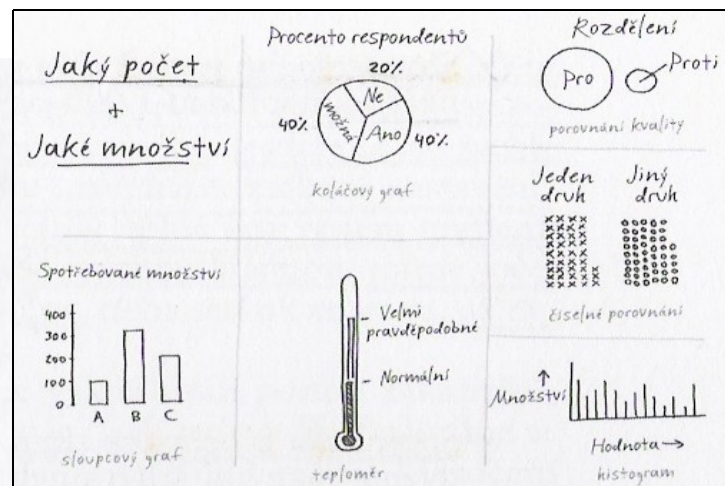 Jaký počet
+
Jaké množství
Procento respondentů
20%
Ne
možná
Ano
40%
40%
koláčový graf
Rozdělení
Pro
Proti
porovnání kvality
Jeden druh
Jiný druh
číselné porovnání
Spotřebované množství
400
300
200
100
0
A B C
sloupcový graf
Velmi
pravděpodobné
Normální
teploměr
↑
Množství
Hodnota →
histogram